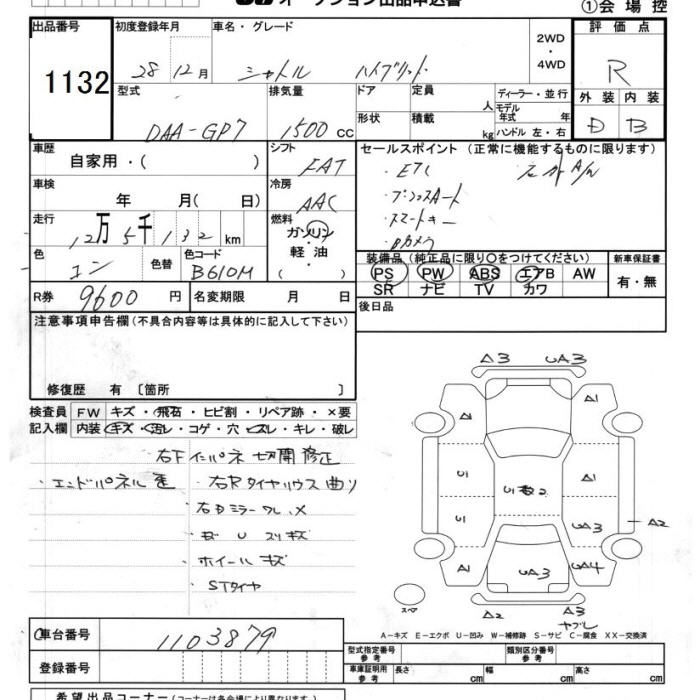 オークション出品申込書
①会場控
出品番号
1132
初度登録年月
28年 12月
車名・グレード
シャトル ハイブリット
2WD
・
4WD
評価点
R
外装 内装
D B
型式
DAA-GP7
排気量
1500 CC
ドア
定員
人
ディーラー・並行
モデル年式 年
形状
積載
kg
ハンドル 左・右
車歴
自家用・( )
シフト
FAT
セールスポイント (正常に機能するものに限ります)
・ETC
・プッシュスタート
・スマートキー
・Bカメラ
車検
年 月( 日)
冷房
AAC
走行
12万5千132km
燃料
ガソリン
軽油
( )
色
コン
色替
色コード
B610M
装備品 (純正品に限り○をつけてください)
PS PW ABS エアB AW
SR ナビ TV カワ
新車保証書
有・無
R券
9600 円
名変期限 月 日
後日品
注意事項申告欄 (不具合内容等は具体的に記入して下さい)
修復歴 有 〔箇所 〕
検査員 FW キズ・飛石・ヒビ割・リペア跡・×要
記入欄 内装 キズ・汚レ・コゲ・穴・スレ・キレ・破レ
右F インパネ 切開修正
・エンドパネル 歪 ・右Rタイヤハウス 曲リ
・右Dミラー ワレ ×
・ホイール キズ
・STタイヤ
△3 UA3
A1 A1
U A1
U 数2
U UA3 A2
A1 UA3 UA4
スペア A2 A3
ヤブレ
A-キズ E-エクボ U-凹み W-補修跡 S-サビ C-腐食 XX-交換済
車台番号
1103879
登録番号
型式指定番号
参考
類別区分番号
参考
車庫証明用
参考
長さ cm 幅 cm 高さ cm
希望出品コーナー